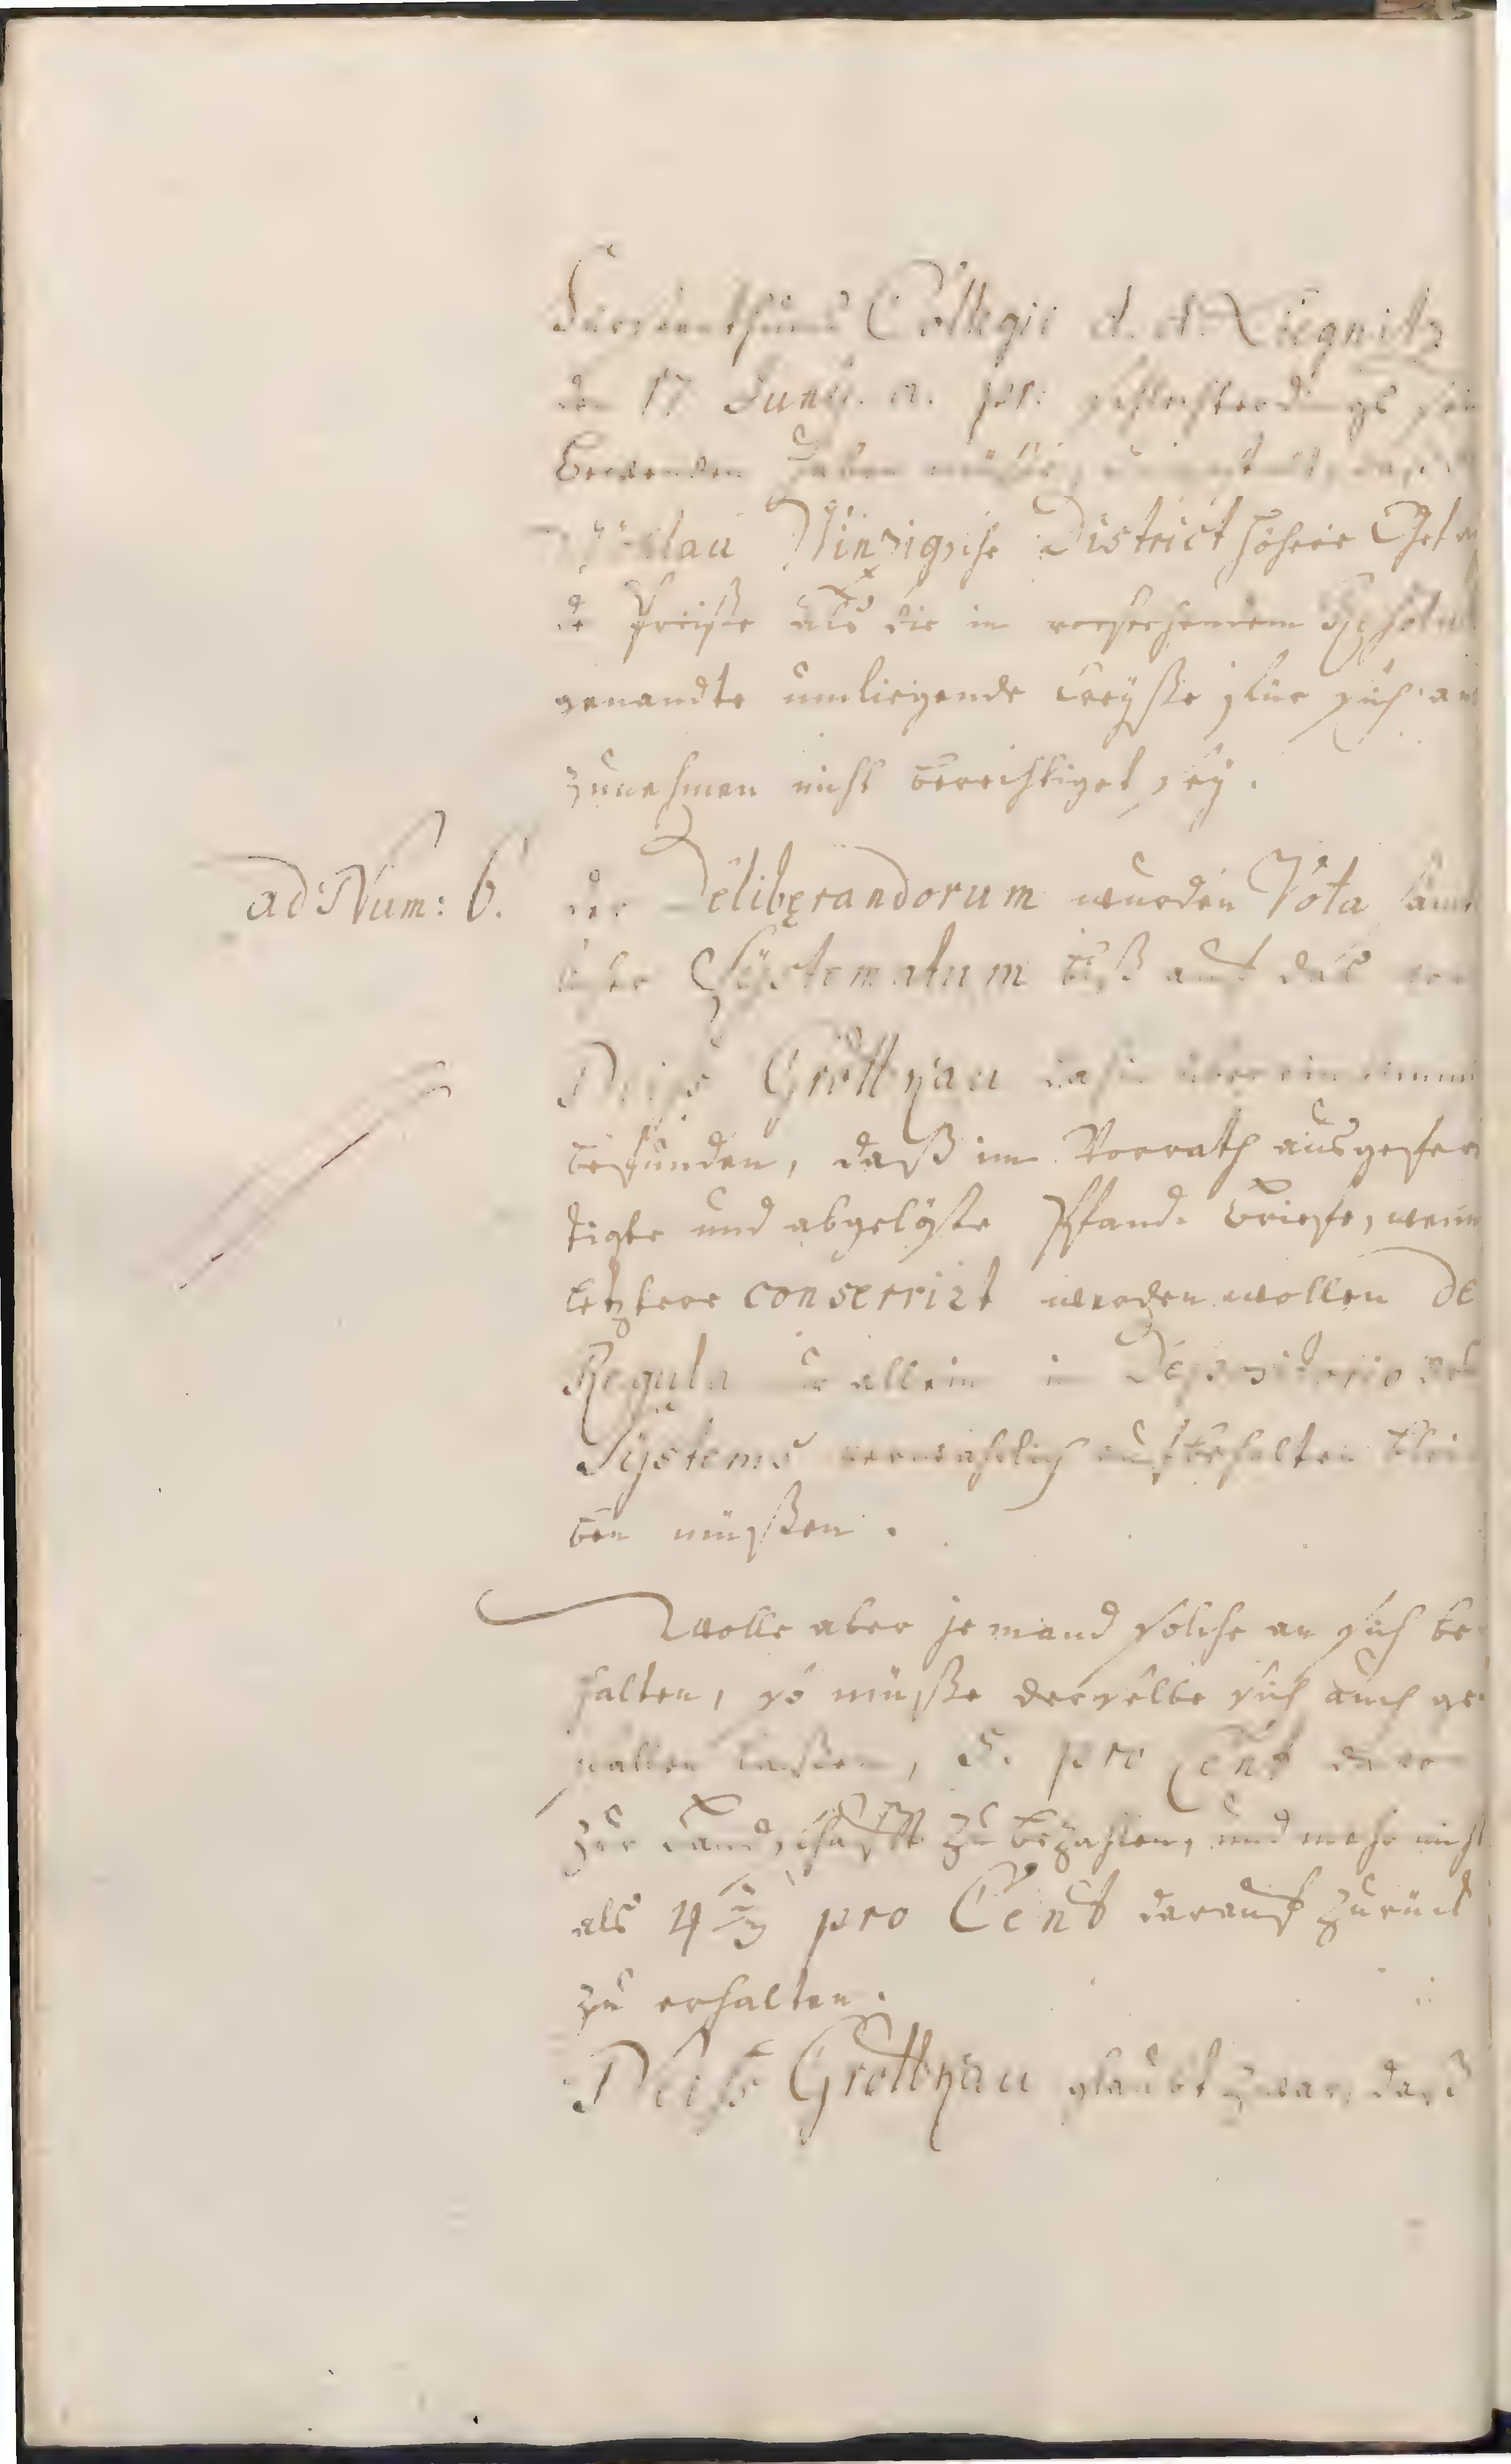 Fürstenthums Collegii d. d. Liegnitz
den 17 Juny. a. pr. schlechterdings sein
Bewenden haben müsse,
Wohlau Winzigsche District höhere Getrey
de Preiße als die in vorstehendem
genandte umliegende Creyße für sich an
zunehmen nicht berechtiget sey.
ad Num: 6. der Deliberandorum wurden Vota sämt
licher Systematum biß auf das von
Neiß Grottgau dahin übereinstimmi
befunden, daß im Vorrath ausgefer
tigte und abgelöste Pfand Briefe, wenn
letztere conserrirt werden wollen de
Regula allein in Depositorio des
Systems verwahrlich aufbehalten blei
ben müßen.
Wolle aber jemand solche an sich be
halten, so müße derselbe sich auch ge
fallen laßen, 5. pro Cent davon
zur Landschafft zu bezahlen, und mehr nicht
als 4 2/3 pro Cent darauf zurück
zu erhalten.
Neiß Grottgau glaubt zwar, daß